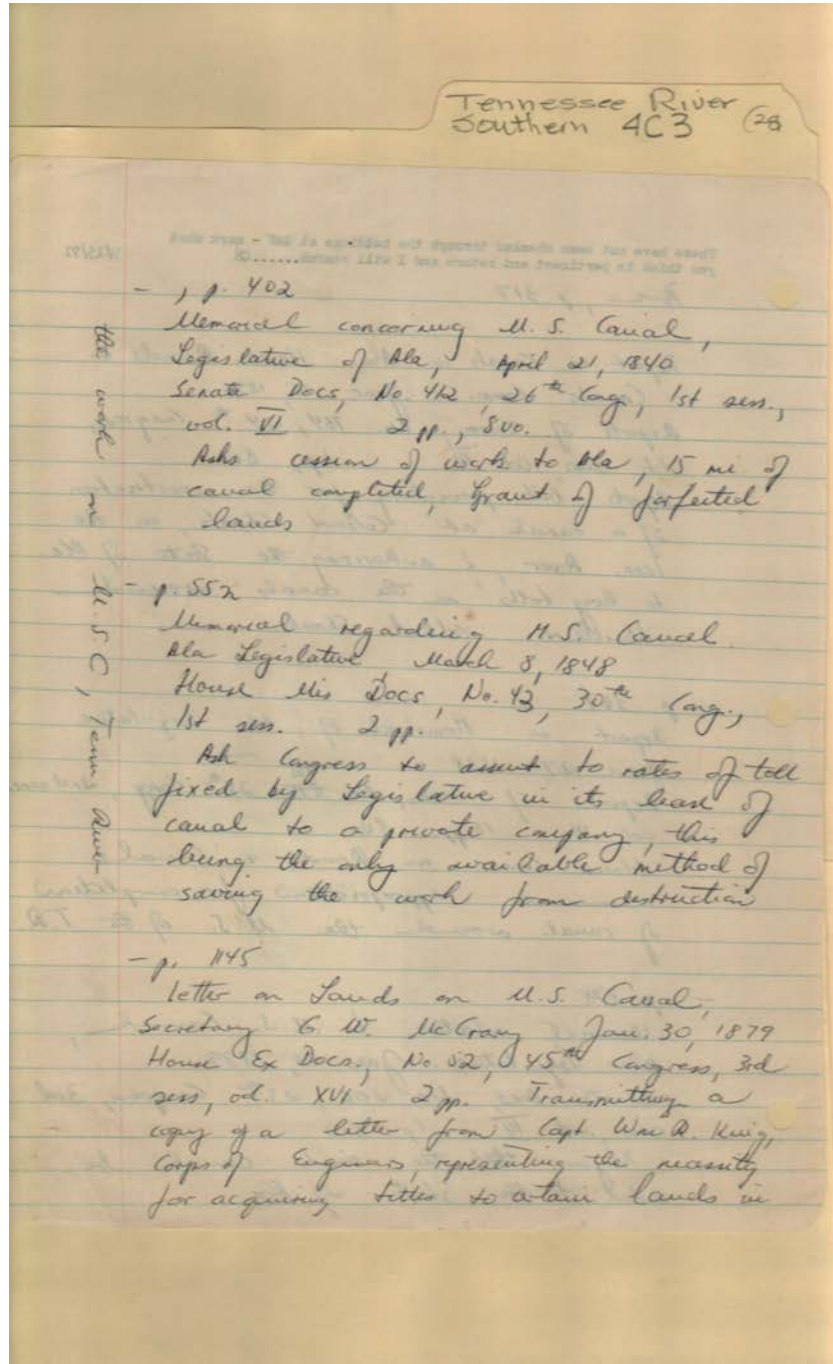 Tennessee River
Southern 4C3 (28
These have not been checked through the holdings at
you think is pertinent and return and I will
- , p. 402
Memorial concerning M. S. Canal,
Legislative of Ala, April 21, 1840
Senate Docs, No. 412, 26th Cong., 1st sess.,
vol. VI 2 pp., 8vo.
Asks cession of work to Ala, 15 mi of
canal completed, Grant of forfeited
lands
- p. 552
Memorial regarding M. S. Canal.
Ala Legislative, March 8, 1848
House Mis Docs, No. 43, 30th Cong.,
1st sess. 2 pp.
Ask Congress to assent to rates of toll
fixed by Legislative in its lease of
canal to a private company, this
being the only available method of
saving the work from destruction
- p. 1145
letter on Lands on M.S. Canal,
Secretary G. W. McCrary Jan. 30, 1879
House Ex Docs., No. 52, 45th Congress, 3rd
sess, vol. XVI 2 pp. Transmitting a
copy of a letter from Capt. Wm R. King,
Corps of Engineers, representing the necessity
for acquiring titles to certain lands in
the work on M.S.C, Tenn River